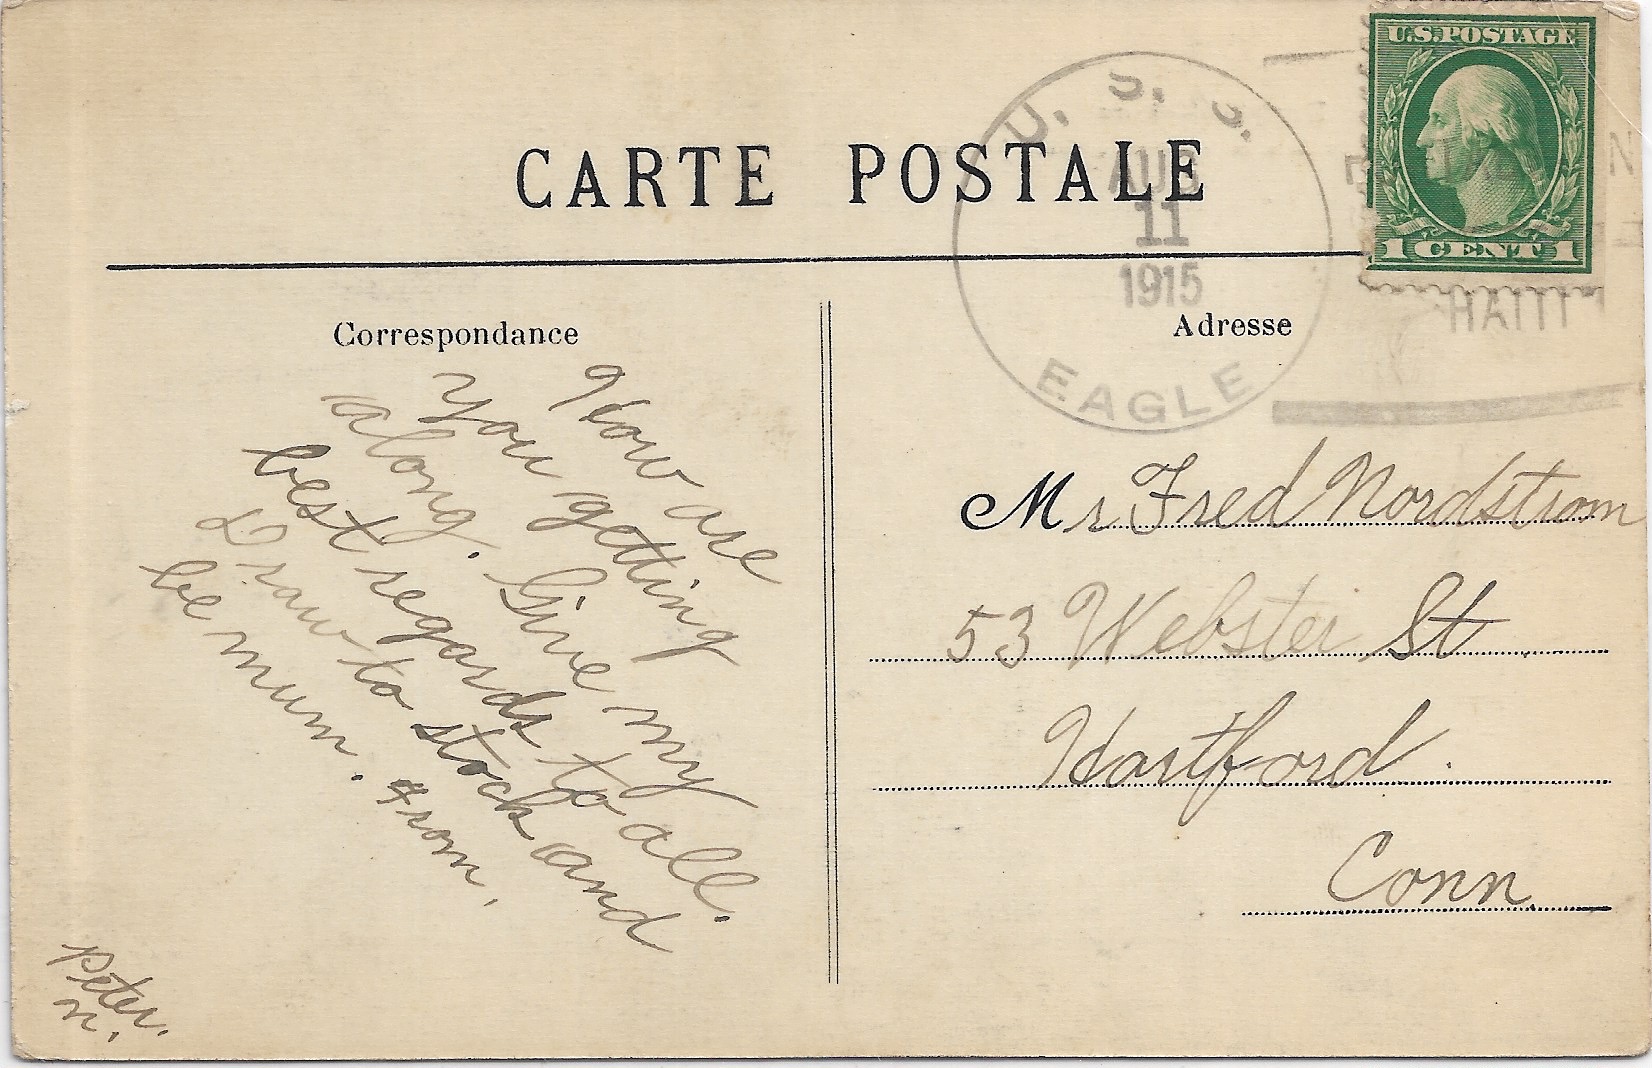 U.S. POSTAGE
1 CENT 1
U. S. S.
EAGLE
AUG
11
1915
HAITI
CARTE POSTALE
Correspondance
How are
you getting
along. Give my
best regards to all.
Draw to stock and
be mum. From,
Peter.
N.
Adresse
Mr Fred Nordstrom
53 Webster St
Hartford.
Conn.